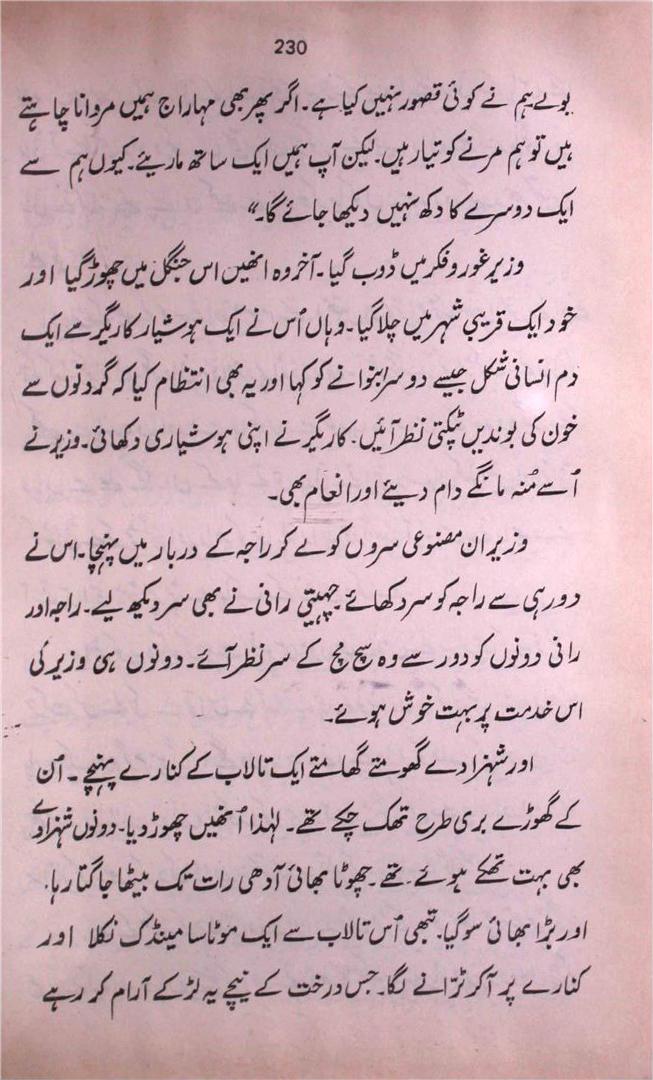 230
بولے ہم نے کوئی قصور نہیں کیا ہے۔ اگر پھر بھی مہاراج ہمیں مروانا چاہتے
ہیں تو ہم مرنے کو تیار ہیں۔ لیکن آپ ہمیں ایک ساتھ مارئیے۔ کیوں ہم سے
ایک دوسرے کا دکھ نہیں دیکھا جائے گا۔"
وزیر غور و فکر میں ڈوب گیا۔ آخر وہ انھیں اس جنگل میں چھوڑ گیا اور
خود ایک قریبی شہر میں چلا گیا۔ وہاں اُس نے ایک ہوشیار کاریگر سے ایک
دم انسانی شکل جیسے دو سر بنوانے کو کہا اور یہ بھی انتظام کیا کہ گردنوں سے
خون کی بوندیں ٹپکتی نظر آئیں۔ کاریگر نے اپنی ہوشیاری دکھائی۔ وزیر نے
اُسے مُنہ مانگے دام دیئے اور انعام بھی۔
وزیر ان مصنوعی سروں کو لے کر راجہ کے دربار میں پہنچا۔ اس نے
دور ہی سے راجہ کو سر دکھائے چہیتی رانی نے بھی سر دیکھ لیے۔ راجہ اور
رانی دونوں کو دور سے وہ سچ مچ کے سر نظر آئے۔ دونوں ہی وزیر کی
اس خدمت پر بہت خوش ہوئے۔
اور شہزادے گھومتے گھامتے ایک تالاب کے کنارے پہنچے۔ اُن
کے گھوڑے بری طرح تھک چکے تھے۔ لہٰذا اُنھیں چھوڑ دیا۔ دونوں شہزادے
بھی بہت تھکے ہوئے تھے۔ چھوٹا بھائی آدھی رات تک بیٹھا جاگتا رہا۔
اور بڑا بھائی سو گیا۔ تبھی اُس تالاب سے ایک موٹا سا مینڈک نکلا اور
کنارے پر آکر ٹرّانے لگا۔ جس درخت کے نیچے یہ لڑکے آرام کر رہے